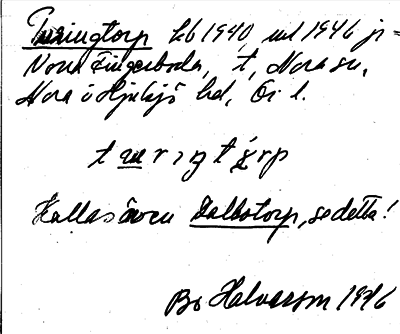 Turingtorp kb 1940, uul 1946 ji =
Nora Fingerboda, t, Nora sn,
Nora o Hjulsjö hd, Ör l.
t u r ı ŋ t o r p
Kallas även Dalbotorp, se detta!
Bo Halvarson 1946